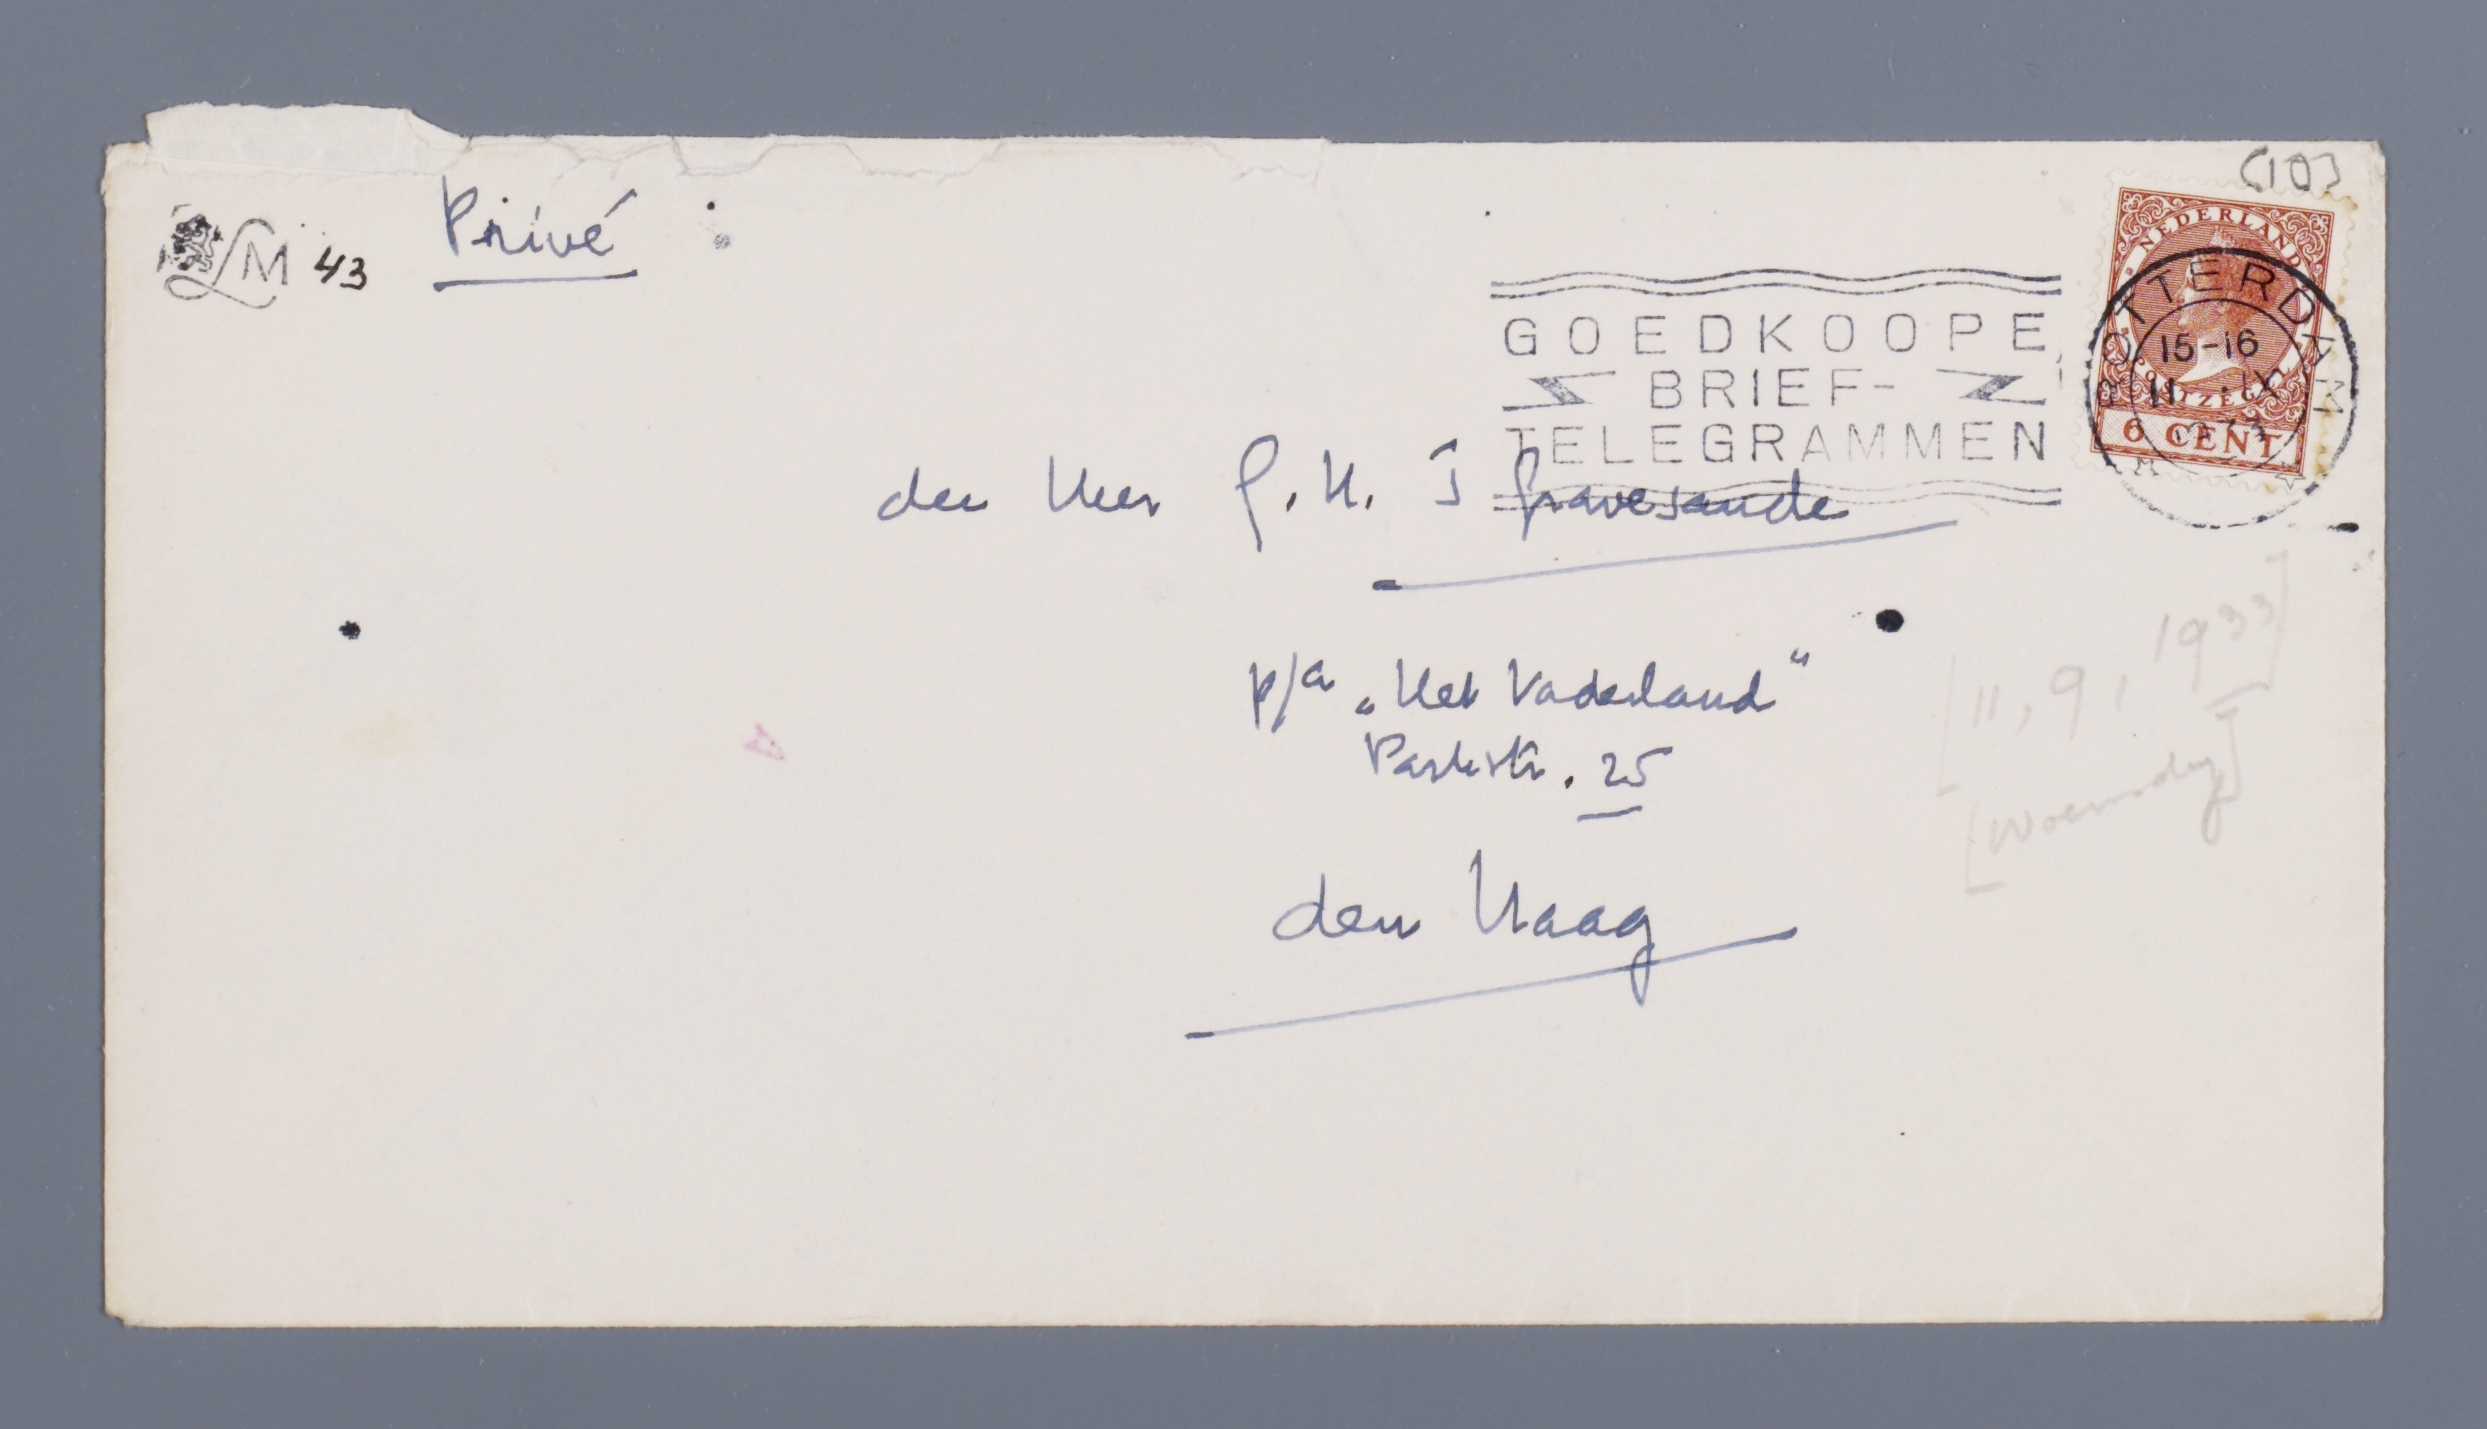 [10]
LM 43
Privé
NEDERLAND
POSTZEGEL
6 CENT
ROTTERDAM
15-16
11 . IX
GOEDKOOPE
BRIEF-
TELEGRAMMEN
den Heer G. H. 's Gravesande
p/a „Het Vaderland"
Parkstr. 25
den Haag
[11, 9, 1933]
[Woensdag]